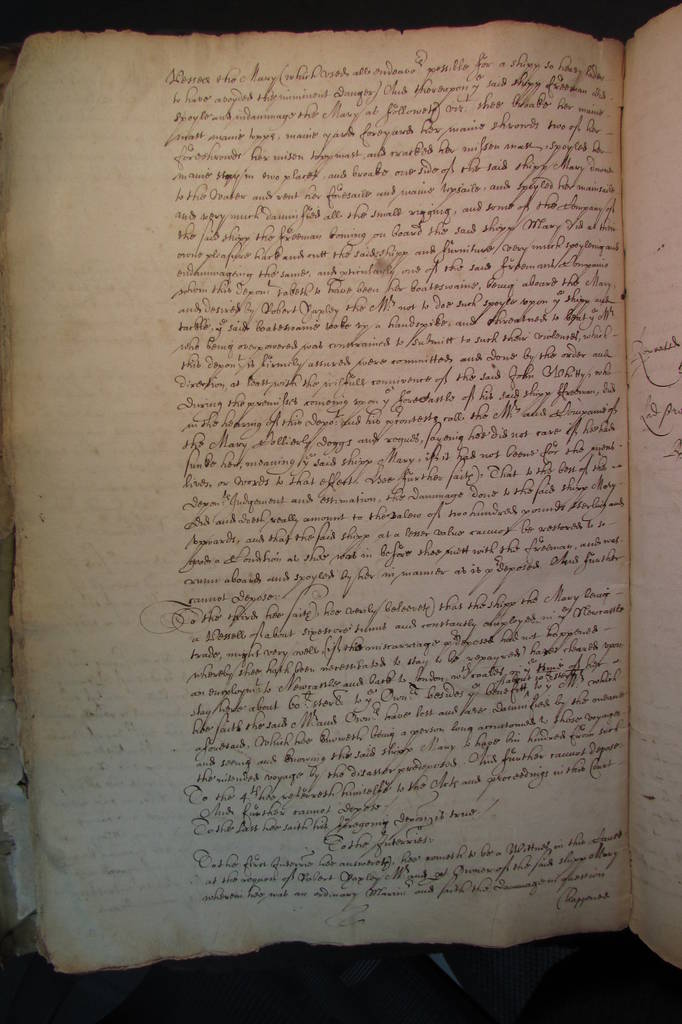 Vessell the Mary (which used all endeavor possible for a shipp so heavy laden
to have avoyded the iminent danger) And thereupon ye said shipp Freeman did
spoyle and indammage the Mary as followeth vizt. shee broake her maine
mast maine topps, maine yard foreyard her maine shrowds two of her
foreshrowds her misen topp mast, and cracked her missen mast, spoyled her
maine stay in two places, and broake one side of the said shipp Mary downe
to the water and rent her foresaile and maine topsaile, and spoyled her mainsaile
and very much damnifyed all the small rigging, and some of the Company of
the said shipp the Freeman coming on board the said shipp Mary did at their
owne pleasure hack and cutt the said shipp and furniture very much spoyleing and
endammageing the same, and pticularly one of the said Freemans Companie
whom this deponent taketh to have been her boatswaine, being aboard the Mary,
and desired by Robert Yaxley the Mr. not to doe such spoyle upon ye shipp and
tackle, ye said boateswaine tooke up a handspike, and threatned to beat ye Mr.
who being overpowered was constrained to submitt to such their violences, which
this deponent is firmely assured were committed and done by the order and
direction, at least with the wilfull connivence of the said John Whetty, who
during the premisses comeing upon ye forecastle of his said shipp Freeman, did
in the hearing of this depot. and his contests call the Mr. and Companie of
the Mary Collierly doggs and rogues, sayeing hee did not care if hee had
sunke her, meaning ye said shipp Mary, if it had not beene for the mens
lives, or words to that effect. Hee further saith, That to the best of this
deponts. Judgement and estimation, the dammage done to the said shipp Mary
did and doeth really amount to the valew of two hundred pounds sterling and
upwards, and that the said shipp at a lesser value cannot be restored to so
good a Condition as shee was in before shee mett with the Freeman, and was
runn aboard and spoyled by her in manner as is pdeposed. And further
cannot depose.
To the third hee saith, hee verily beleeveth that the shipp the Mary being
a Vessell of about sixescore tunns and constantly employed in ye Newcastle
trade, might very well (if the miscarriage pdeposed had not happened
whereby shee hath been necessitated to stay to be repayred) have cleared upon
an employmt. to Newcastle and back to London wth coales in ye time of her
stay here about 60li. sterl. to ye Ownrs. besides ye benefitt to ye Mr. which
hee saith the said Mr. and Ownrs. have lost and are damnified by the meanes
aforesaid, Which hee knoweth being a person long accustomed to those voyages
and seeing and knowing the said shipp Mary to have bin hindred from such
the intended voyage by the disaster predeposed. And further cannot depose
To the 4th. hee referreth himselfe to the Acts and proceedings in this Court
And further cannot depose.
To the last hee saith his foregoing deposn. is true.
To the Interries.
To the first Interrie hee answereth, hee cometh to be a Wittnes in this Cause
at the request of Robert Yaxley Mr. and Owner of the said shipp Mary
wherein hee was an ordinary Marinr. and saith the dammage in question
happened